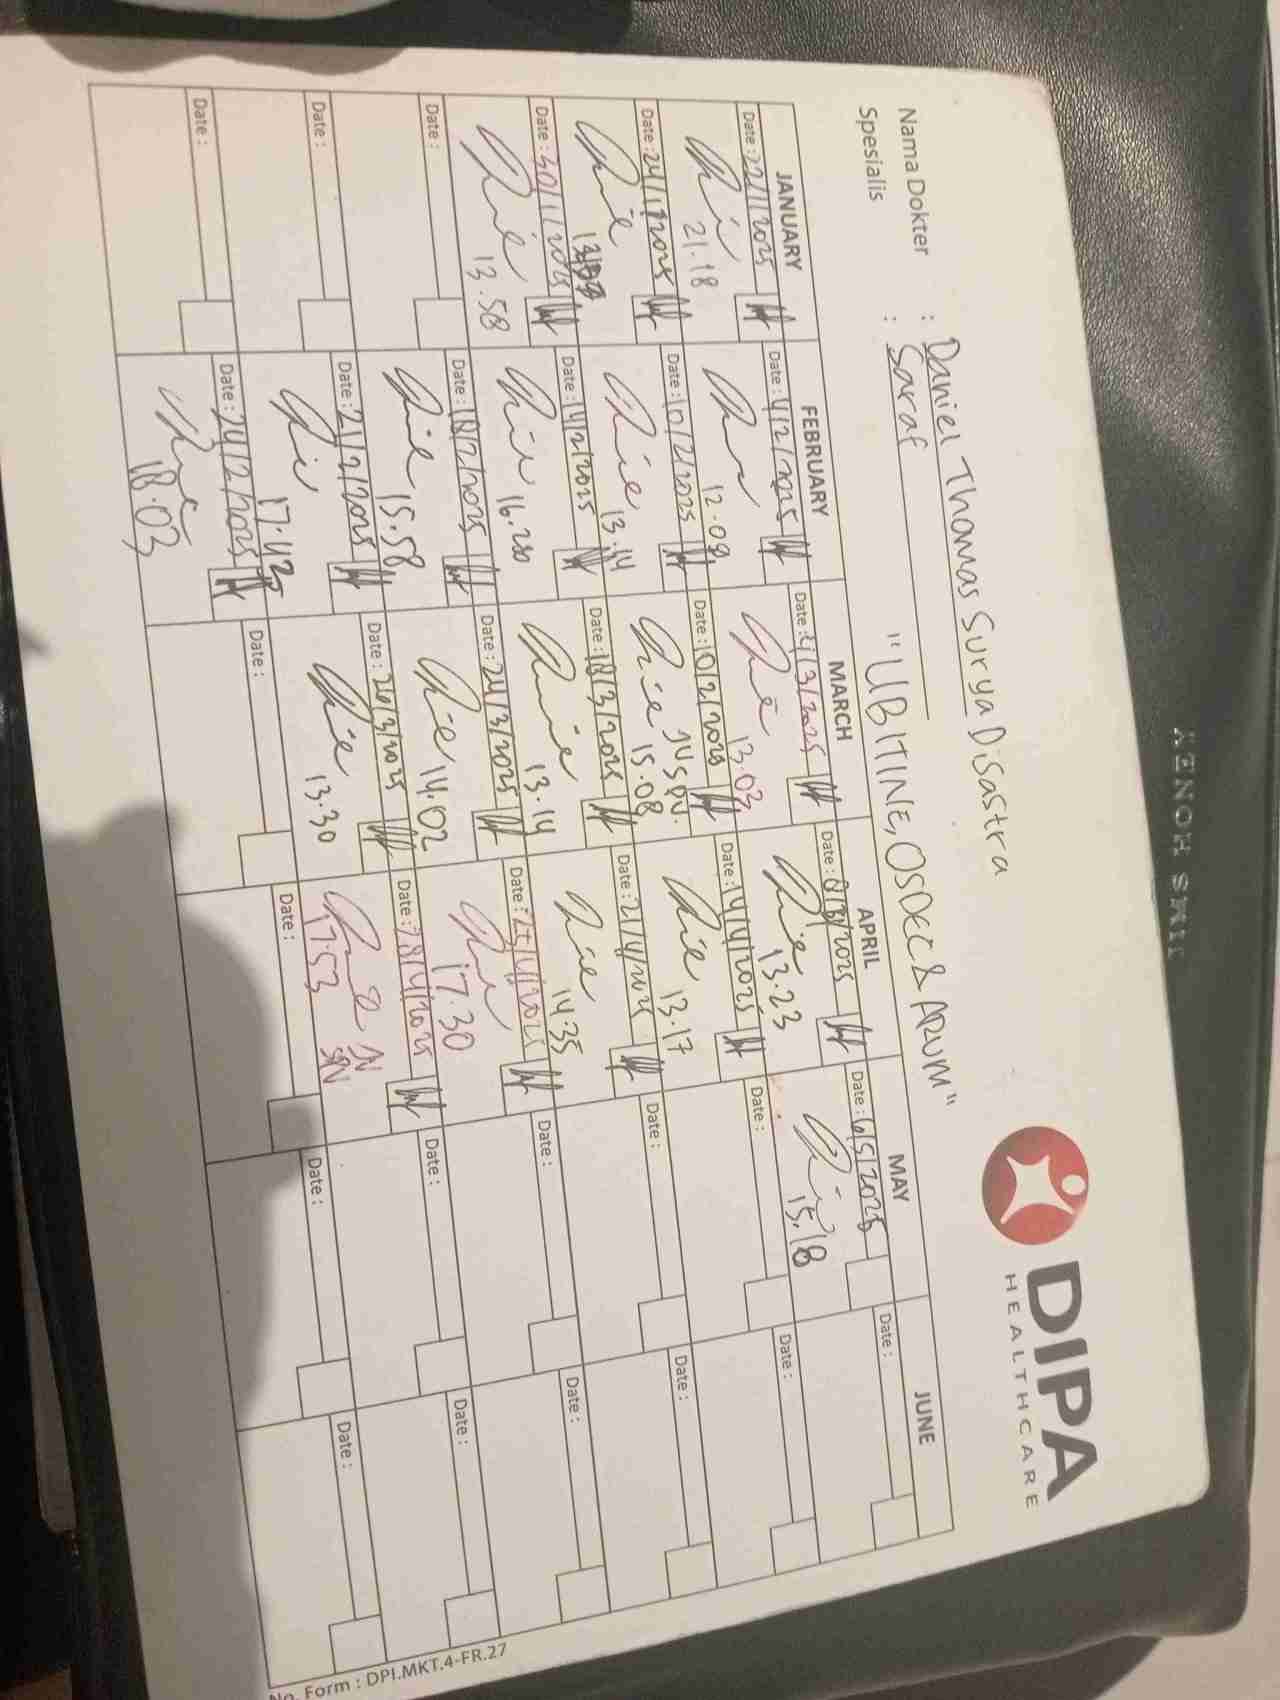 DIPA
HEALTHCARE
Nama Dokter : Daniel Thomas Surya Disastra
Spesialis : Saraf "UBITINE, OSDEC & ARUM"
JANUARY FEBRUARY MARCH APRIL MAY JUNE
Date : 22/1/2025 Date : 4/2/2025 Date : 4/3/2025 Date : 8/3/2025 Date : 6/5/2025 Date :
21.18 12.08 13.03 13.23 15.18
Date : 24/1/2025 Date : 10/2/2025 Date : 10/2/2025 Date : 14/4/2025 Date : Date :
13.14 15.08 13.17
Date : 30/1/2025 Date : 14/2/2025 Date : 18/3/2025 Date : 21/4/2025 Date : Date :
13.58 16.20 13.14 14.35
Date : Date : 18/2/2025 Date : 24/3/2025 Date : Date : Date :
15.58 14.02 17.30
Date : Date : 21/2/2025 Date : 26/3/2025 Date : 28/4/2025 Date : Date :
17.42 13.30 17.53
Date : Date : 24/2/2025 Date : Date : Date : Date :
18.03
No. Form : DPI.MKT.4-FR.27